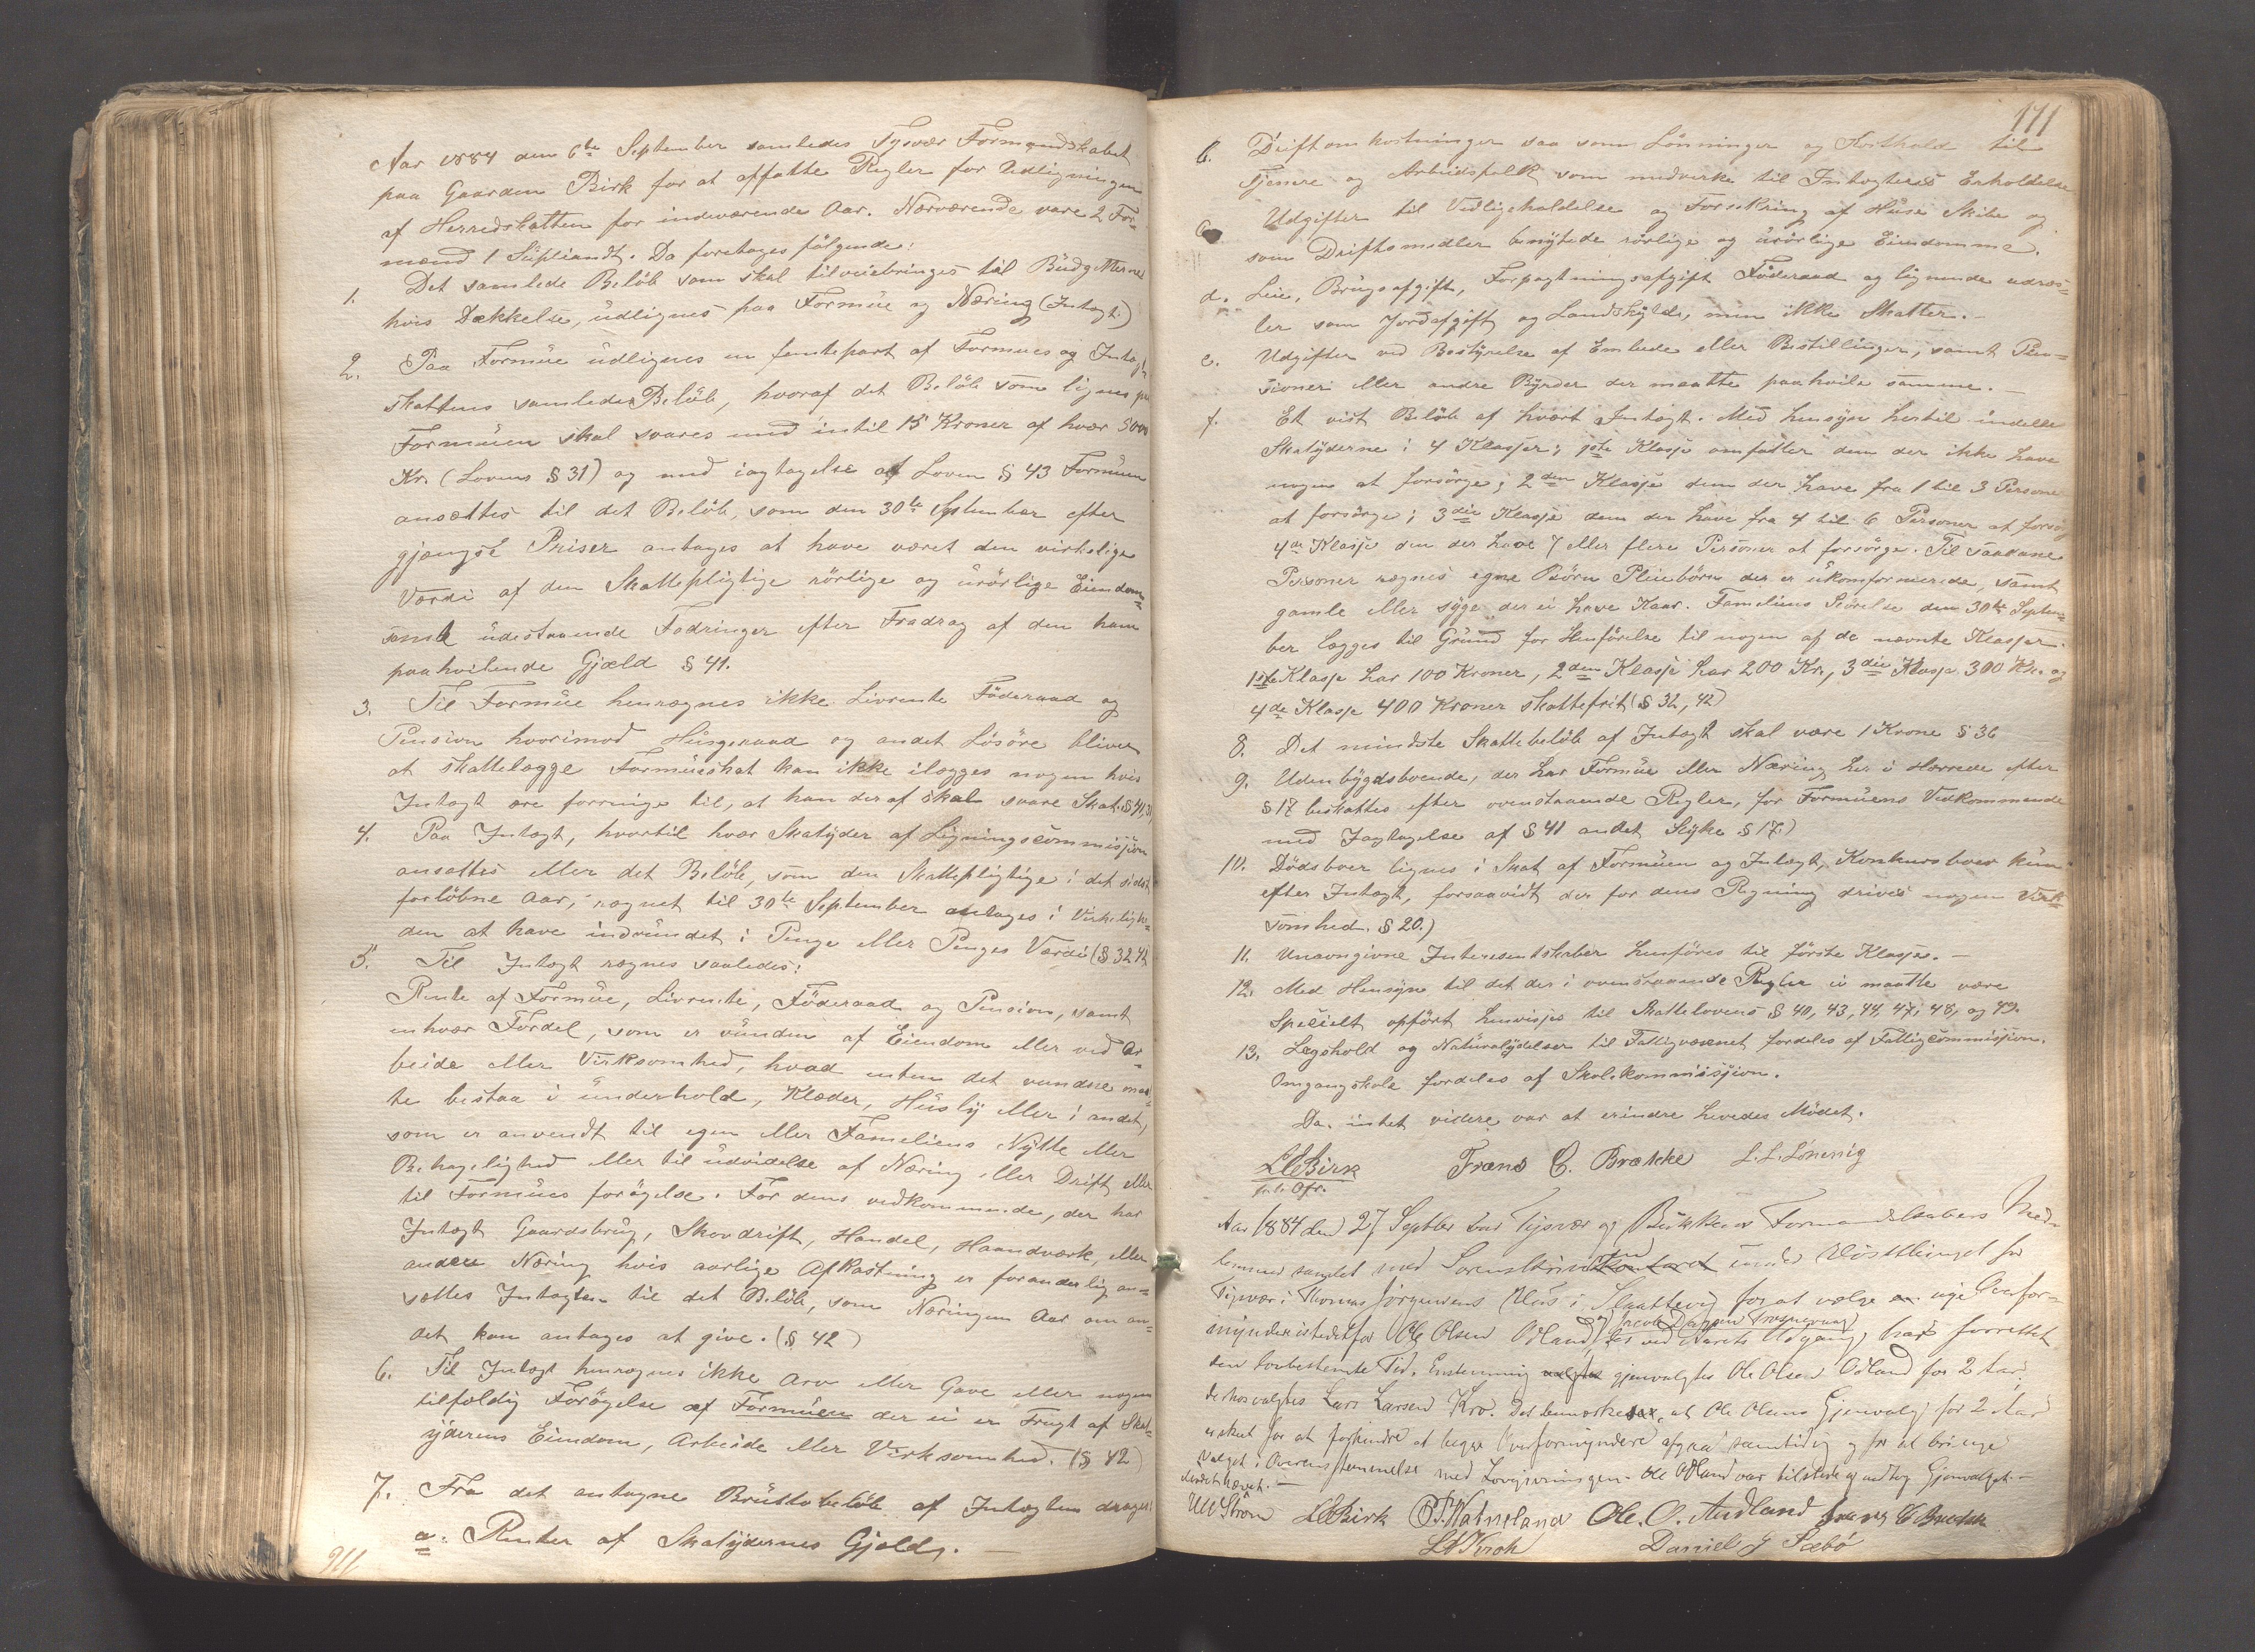 Aar 1884 den 6te September samledes Tysvær Formandskabet
paa Gaarden Birk for at affatte Regler for Udligningen
af Herredskatten for indeværende Aar. Nærværende vare 2 For-
mænd 1 Supliandt. Da foretoges følgende:
1. Det samlede Beløb som skal tilveiebringes til Budgetternes
hvis Dækkelse, udlignes paa Formue og Næring (Indtægt.)
2. Paa Formue udlignes en femtepart af Formues og Intægt-
skattens samlede Beløb, hvoraf det Beløb som lignes paa
Formuen skal svares med intil 15 Kroner af hver 5000
Kr. (Lovens § 31) og med iagtagelse af Loven § 43 Formuen
ansættes til det Beløb, som den 30te September efter
gjængse Priser antages at have været den virkelige
Værdi af den Skattepligtige rørlige og urørlige Eiendom-
samt udestaaende Fodringer efter Fradrag af den ham
paahvilende Gjæld § 41.
3. Til Formue henregnes ikke Livrente Føderaad og
Pension hvorimod Husgeraad og andet Løsøre bliver
at skattelægge Formueskat kan ikke ilægges nogen hvis
Intægt ere forringe til, at han deraf skal svare Skat. § 41,31
4. Paa Intægt, hvortil hver Skatyder af Ligningscommissjon
ansættes eller det Beløb, som den Skattepligtige i det sidst
forløbne Aar, regnet til 30te September antages i Virkelighe-
den at have indvundet i Penge eller Penges Værdi (§ 32 42
5. Til Intægt regnes saaledes:
Rente af Formue, Livrente, Føderaad og Pension, samt
enhver Fordel, som er vunden af Eiendom eller ved Ar-
beide eller Virksomhed, hvad enten det vundne maat-
te bestaa i underhold, Klæder, Husly eller i andet,
som er anvendt til egen eller Fameliens Nytte eller
Behagelighed eller til udvidelse af Næring eller Drift eller
til Formues forøgelse. For dens vedkommende, der har
Intægt Gaardsbrug, Skovdrift, Handel, Haandværk, eller
anden Næring hvis aarlige Afkastning er foranderlig an-
sættes Intægten til det Beløb, som Næringen Aar om an-
det kan antages at give. (§ 42)
6. Til Intægt henregnes ikke Arv eller Gave eller nogen
tilfældig Forøgelse af Formuen der ei er Frugt af Skat-
yderens Eiendom, Arbeide eller Virksomhed. (§ 42)
7. Fra det antagne Bruttobeløb af Intægten drages:
a. Renter af Skatydernes Gjæld. —
171
b. Driftomkostninger saa som Lønninger og Kosthold til
Tjenere og Arbeidsfolk som medvirke til Intægternes Erholdelse
c. Udgifter til Vedligeholdelse og Forsikring af Huse Skibe og
som Driftsmidler benyttede rørlige og urørlige Eiendomme.
d. Leie, Brugsafgift, Forpagtningsafgift Føderaad og lignende udreds-
ler som Jordafgift og Landskyld, men ikke Skatter. —
e. Udgifter ved Bestyrelse af Embede eller Bestillinger, samt Pen-
sioner eller andre Byrder der maatte paahvile samme. —
f. Et vist Beløb af hvert Intægt. Med hensyn hertil indelles
Skatyderne i 4 Klasser; 1ste Klasse omfatter dem der ikke have
nogen at forsørge; 2den Klasse dem der have fra 1 til 3 Personer
at forsørge; 3die Klasse dem der have fra 4 til 6 Personer at forsørge
4de Klasse dem der have 7 eller flere Personer at forsørge. Til saadane
Personer regnes egne Børn Pleiebørn der er ukomformerede, samt
gamle eller syge der ei have Kaar. Fameliens Størelse den 30te Septem-
ber lægges til Grund for Henførelse til nogen af de nævnte Klasser.
1ste Klasse har 100 Kroner, 2den Klasse har 200 Kr, 3die Klasse 300 Kr. og
4de Klasse 400 Kroner skattefrit (§ 32, 42)
8. Det mindste Skattebeløb af Intægt skal være 1 Krone § 36
9. Udenbygdsboende, der har Formue eller Næring her i Herrede efter
§ 17 beskattes efter ovenstaaende Regler, for Formuens Vedkommende
med Iagtagelse af § 41 andet Styke § 17.)
10. Dødsboer lignes i Skat af Formuen og Intægt, Konkursboer kun
efter Intægt, forsaavidt der for dens Regning drives nogen Virk-
somhed. § 20.)
11. Unavngivne Interesentskaber henføres til første Klasse. —
12. Med Hensyn til det der i ovenstaaende Regler ei maatte være
Specielt opført henvises til Skattelovens § 40, 43, 44, 47, 48, og 49.
13. Lægshold og Naturalydelser til Fattigvæsenet fordeles af Fattigcommissjon.
Omgangskole fordeles af Skolekommissjion.
Da intet videre var at erindre hevedes Mødet.
L E Birk Frans C. Brække L. L. Lønnig
Aar 1884 den 27 Septber var Tysvær og Formandskabers Med-
lemmer samlet med Sorenskriveren for
Tysvær i Thomas Jørgensens Hus i Slaattevig for at vælge nye Overfor-
mynder istedetfor Ole Olsen Odland, der ved Aarets Udgang har forrettet
den lovbestemte Tid. Enstemmig gjenvalgtes Ole Olsen Odland for 2 Aar,
derhos valgtes Lars Larsen Kro. Det bemærkedes, at Ole Olsens Gjenvalg for 2 Aar
er skeet for at forhindre at begge Overformyndere afgaa samtidig og for at bringe
Valget i Overensstemmelse med Lovgivningen. Ole Odland var tilstede og modtog Gjenvalget. —
Mødet hævet. —
Strøm L E Birk Hatneland Ole. O. Audland Frans C Brække
Daniel J Sæbø